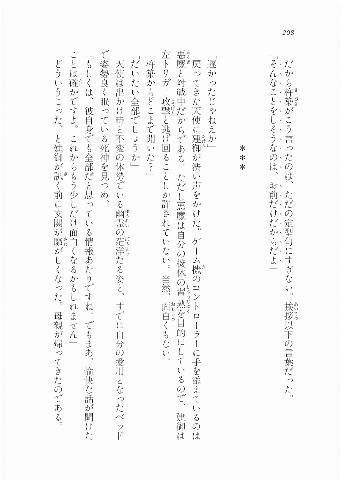 208
だから杵築がこう言ったのは、ただの定型句にすぎない。挨拶以下の言葉だった。
「そんなことをしそうなのは、お前だけだからだよ」
＊＊＊
「遅かったじゃねえか」
戻ってきた天使に建御が渋い声をかけた。ゲーム機のコントローラーに手を添えているのは
悪魔と対戦中だからである。ただし悪魔は自分の機体の
を目的にしているので、建御は
左トリガー攻撃と逃げ回ることしか許されていない。当然、面白くもない。
「杵築からどこまで聞いた？」
「だいたい全部でしょうか」
天使は出かけ時と不変の体勢でいる幽霊の茫洋たる姿と、すでに自分の愛用となったベッド
で姿勢良く眠っている死神を見つめ、
「もしくは、彼自身でも全部だと思っている情報あたりですね。でもまあ、愉快な話が聞けた
ことは確かですよ。これからもう少しだけ面白くなるかもしれません」
どういうこった、と建御が訊く前に玄関が騒がしくなった。母親が帰ってきたのである。